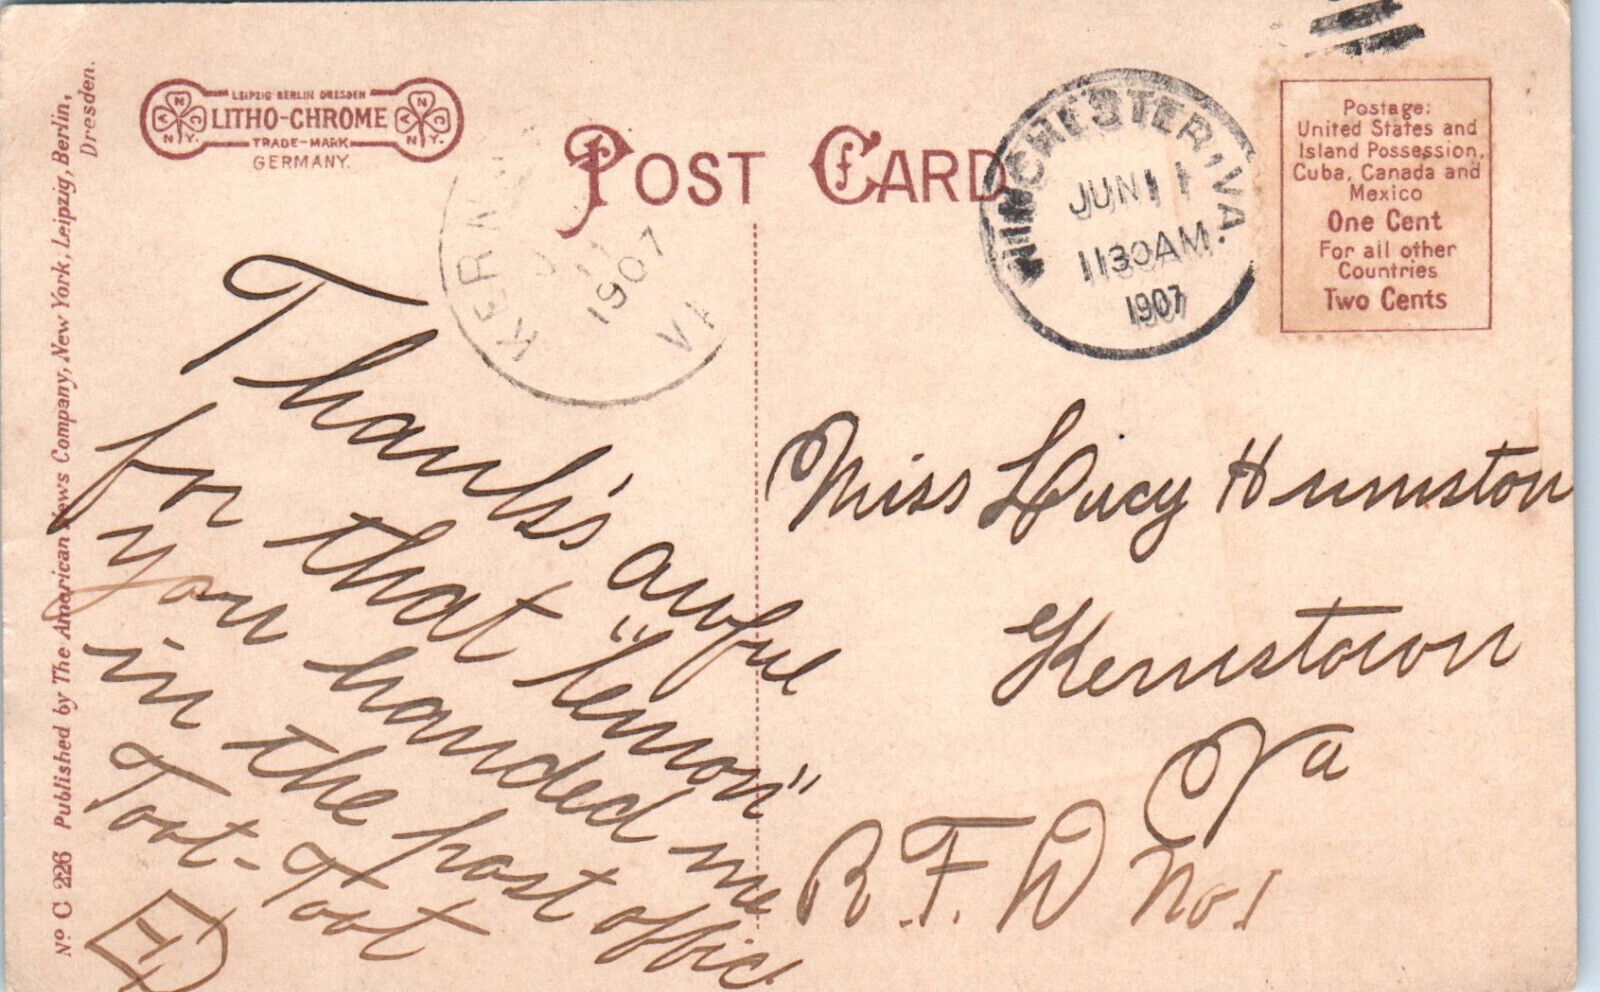 No C 226 Published by The American News Company, New York, Leipzig, Berlin,
Dresden.
LEIPZIG BERLIN DRESDEN
LITHO-CHROME
TRADE-MARK
GERMANY.
POST CARD
KERN
1907
WINCHESTER, VA.
JUN 11
1130 AM
1907
Postage:
United States and
Island Possession,
Cuba, Canada and
Mexico
One Cent
For all other
Countries
Two Cents
Thanks's awful
for that "lemon"
you handed me
in the post office
Toot-Toot
Miss Lucy Humston
Kernstown
Va
R.F.D No. 1